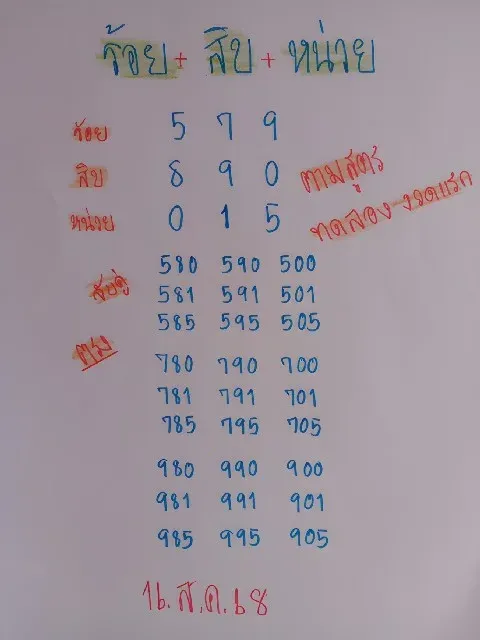 ร้อย + สิบ + หน่วย
ร้อย 5 7 9
สิบ 8 9 0
หน่วย 0 1 5
ตามสูตร
ทดลอง-งวดแรก
580 590 500
จับคู่ 581 591 501
585 595 505
ตรง
780 790 700
781 791 701
785 795 705
980 990 900
981 991 901
985 995 905
16.ส.ค.68